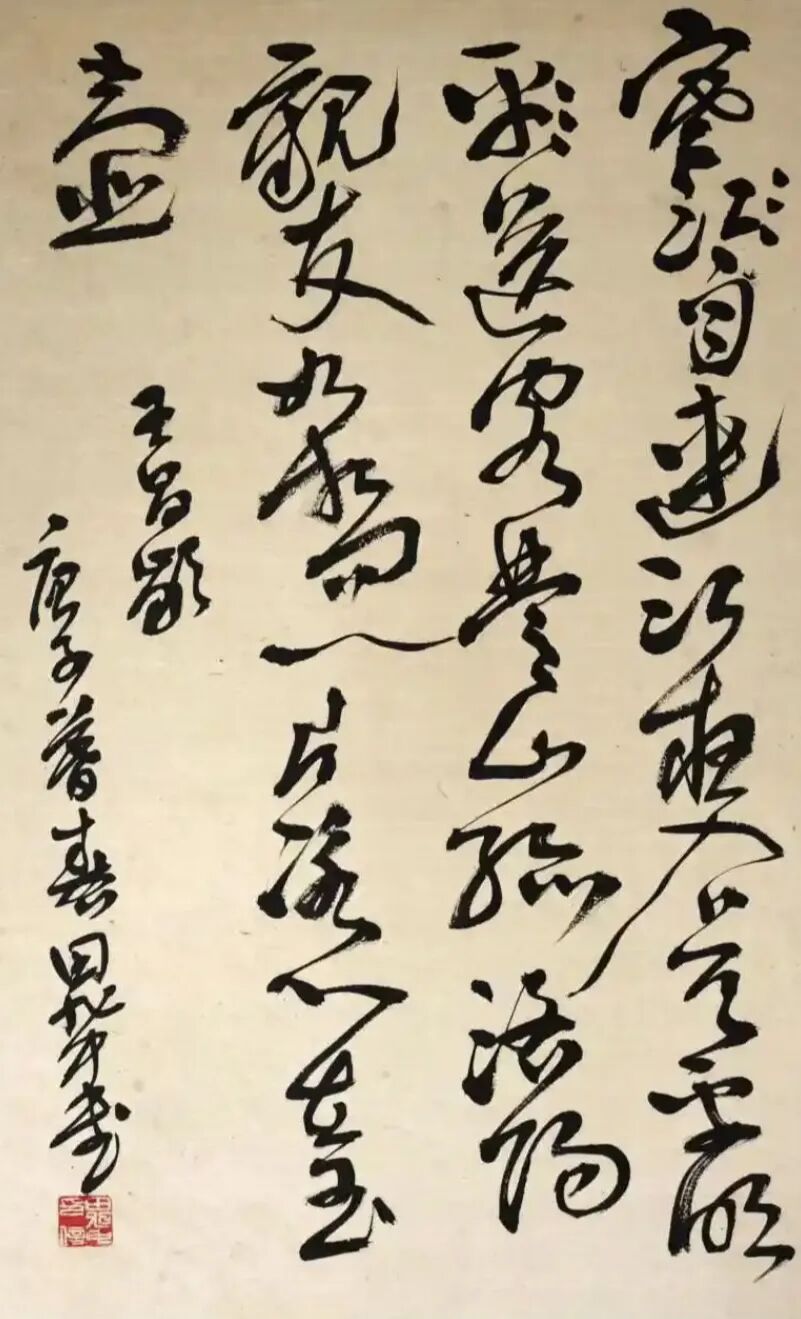 寒自連江夜入吳平明
送客楚山孤洛陽
親友如相問一片冰心在玉
壺
王昌齡
庚子暮春田中書